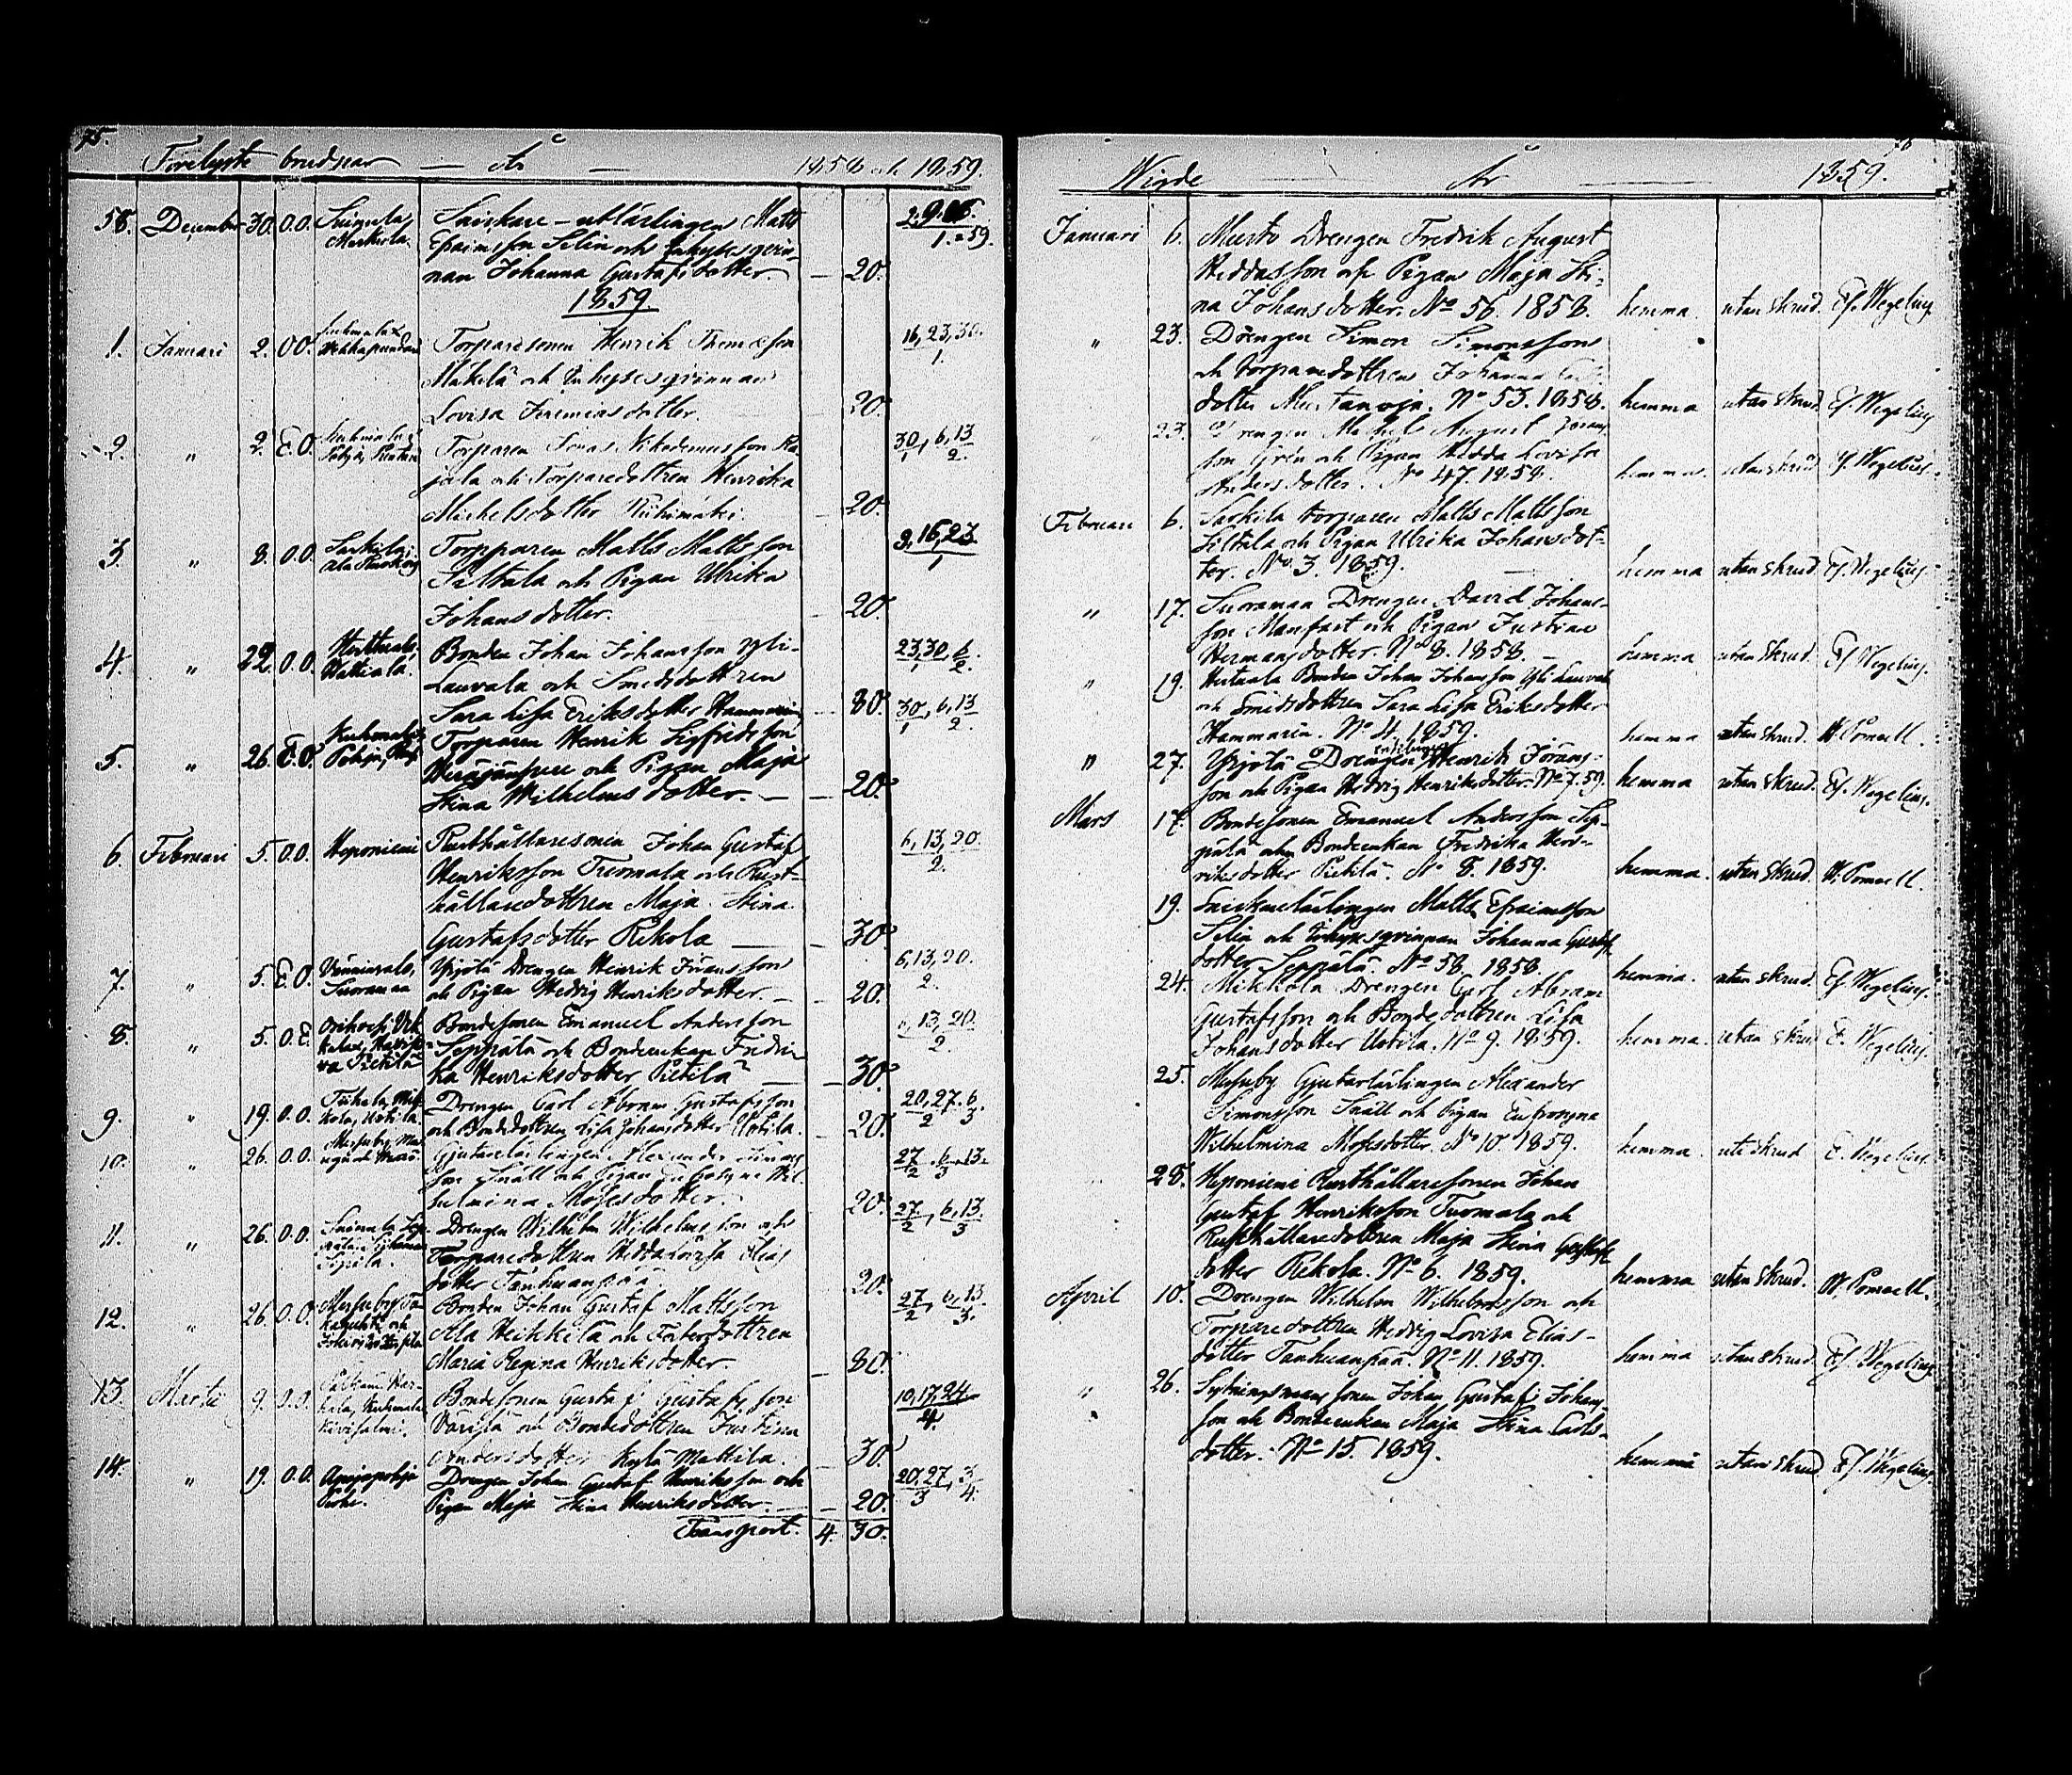 75.
Förelyste brudpar — År — 1858 och 1859.
58. December 30. O.O. Suinula, Markola. Snickare-utlärlingen Matts 2. 9. 16.
Efraimsson Selin och Inhyses qvin- 1. 59.
nan Johanna Gustafsdotter — 20.
1859.
1. Januari 2. O O. Torparesonen Henrik Thomasson 16, 23, 30.
Mäkelä och Inhyses qvinnan 1.
Lovisa Jeremiasdotter. 20.
2. " 2. E.O. Torparen Jonas Nikodemusson Ra 30, 6, 13
jala och Torparedottren Henrika 1 2.
Michelsdotter Riihimäki. 20.
3. " 8. O.O. Sarkila, Torpparen Matts Mattsson 9, 16, 23
Siltala och Pigan Ulrika 1
Johansdotter. 20.
4. " 22. O.O. Bonden Johan Johansson Yli- 23, 30, 6.
Lauvala och Smedsdottren 2.
Sara Lisa Eriksdotter Hammarin 30.
5. " 26. E.O. Torparen Henrik Sigfridsson 30, 6, 13
och Pigan Maja 1 2.
Stina Wilhelmsdotter. — 20.
6. Februari 5. O.O. Heponiemi Rusthållaresonen Johan Gustaf 6, 13, 20.
Henriksson Tuomala och Rust- 2.
hållaredottren Maja Stina
Gustafsdotter Rekola — 30.
7. " 5. E.O. Suoramaa Yrjölä Drengen Henrik Göransson 6, 13, 20.
och Pigan Hedvig Henriksdotter. — 20. 2.
8. " 5. O.E. Bondesonen Emanuel Andersson 6, 13, 20
Seppälä och Bondeenkan Fredri- 2.
ka Henriksdotter Pietilä — 30.
9. " 19. O.O. Drengen Carl Abram Gustafsson 20, 27. 6.
och Bondedottren Lisa Johansdotter Uotila. 20. 2 3
10. " 26. O.O. Gjutarelärlingen Alexander Simons 27, 6, 13.
son Snäll och Pigan Eufrosyne Wil- 2 3
helmina Mosesdotter. 20.
11. " 26. O.O. Drengen Wilhelm Wilhelmsson och 27, 6, 13.
Torparedottren Hedda Lovisa Elias 2 3
dotter Tanhuanpää. 20.
12. " 26. O.O. Bonden Johan Gustaf Mattsson 27, 6, 13
Ala Heikkilä och Fosterdottren 2 3.
Maria Regina Henriksdotter 30.
13. Martii 9. O.O. Bondesonen Gustaf Gustafsson 10, 17, 24.
och Bondedottren Justina 4.
Andersdotter Kylä Mattila. 30.
14. " 19. O.O. Drengen Johan Gustaf Henriksson och 20, 27, 3
Pigan Maja Stina Henriksdotter. — 20. 3 4.
Transport. 4. 30.
76
Wigde År 1859.
Januari 6. Musto Drengen Fredrik August
Heddasson och Pigan Maja Sti-
na Johansdotter. No 56. 1858. hemma. utan skrud. Ef. Wegelius
" 23. Drengen Simon Simonsson
och torparedottren Johanna
dotter Mustanoja. No 53. 1858. hemma utan skrud. Ef. Wegelius
23. Drengen Michel August Göran
son Grén och Pigan Hedda Lovisa
Andersdotter. No 47. 1858. hemma. utan skrud Ef. Wegelius.
Februari 6. Sarkila torparen Matts Mattsson
Siltala och Pigan Ulrika Johansdot-
ter. No. 3. 1859. hemma utan skrud Ef. Wegelius.
" 17. Suoramaa Drengen David Johans-
son Manfast och Pigan Justina
Hermansdotter. No 8. 1858. — hemma utan skrud. Ef. Wegelius.
" 19. Bonden Johan Johansson Yli Lauvala
och Smedsdottren Sara Lisa Eriksdotter
Hammarin. No 4. 1859. hemma utan skrud. W. Pomell.
" 27. Yrjölä Drengen Henrik Görans-
son och Pigan Hedvig Henriksdotter. No 7. 59. hemma utan skrud. Ef. Wegelius.
Mars 17. Bondesonen Emanuel Andersson Sep-
pälä och Bondeenkan Fredrika Hen-
riksdotter Pietilä. No 8. 1859. hemma. utan skrud. W. Pomell.
19. Snickarelärlingen Matts Efraimsson
Selin och Inhyses qvinnan Johanna Gustafs
dotter Seppälä. No 58. 1858 hemma. utan skrud. Ef. Wegelius.
24. Mikkola Drengen Carl Abram
Gustafsson och Bondedottren Lisa
Johansdotter Uotila. No 9. 1859. hemma. utan skrud E. Wegelius.
25. Gjutarlärlingen Alexander
Simonsson Snäll och Pigan Eufrosyna
Wilhelmina Mosesdotter. No 10. 1859. hemma. skrud E. Wegelius.
28. Heponiemi Rusthållaresonen Johan
Gustaf Henriksson Tuomala och
Rusthållaredottren Maja Stina Gustafs
dotter Rekola. No 6. 1859. hemma utan skrud. W. Pomell.
April 10. Drengen Wilhelm Wilhelmsson och
Torparedottren Hedvig Lovisa Elias-
dotter Tanhuanpää. No 11. 1859. hemma utan skrud. Ef. Wegelius.
" 26. Sytningsmans sonen Johan Gustaf Johans-
son och Bondeenkan Maja Stina Carls-
dotter. No 15. 1859. hemma utan skrud Ef. Wegelius.